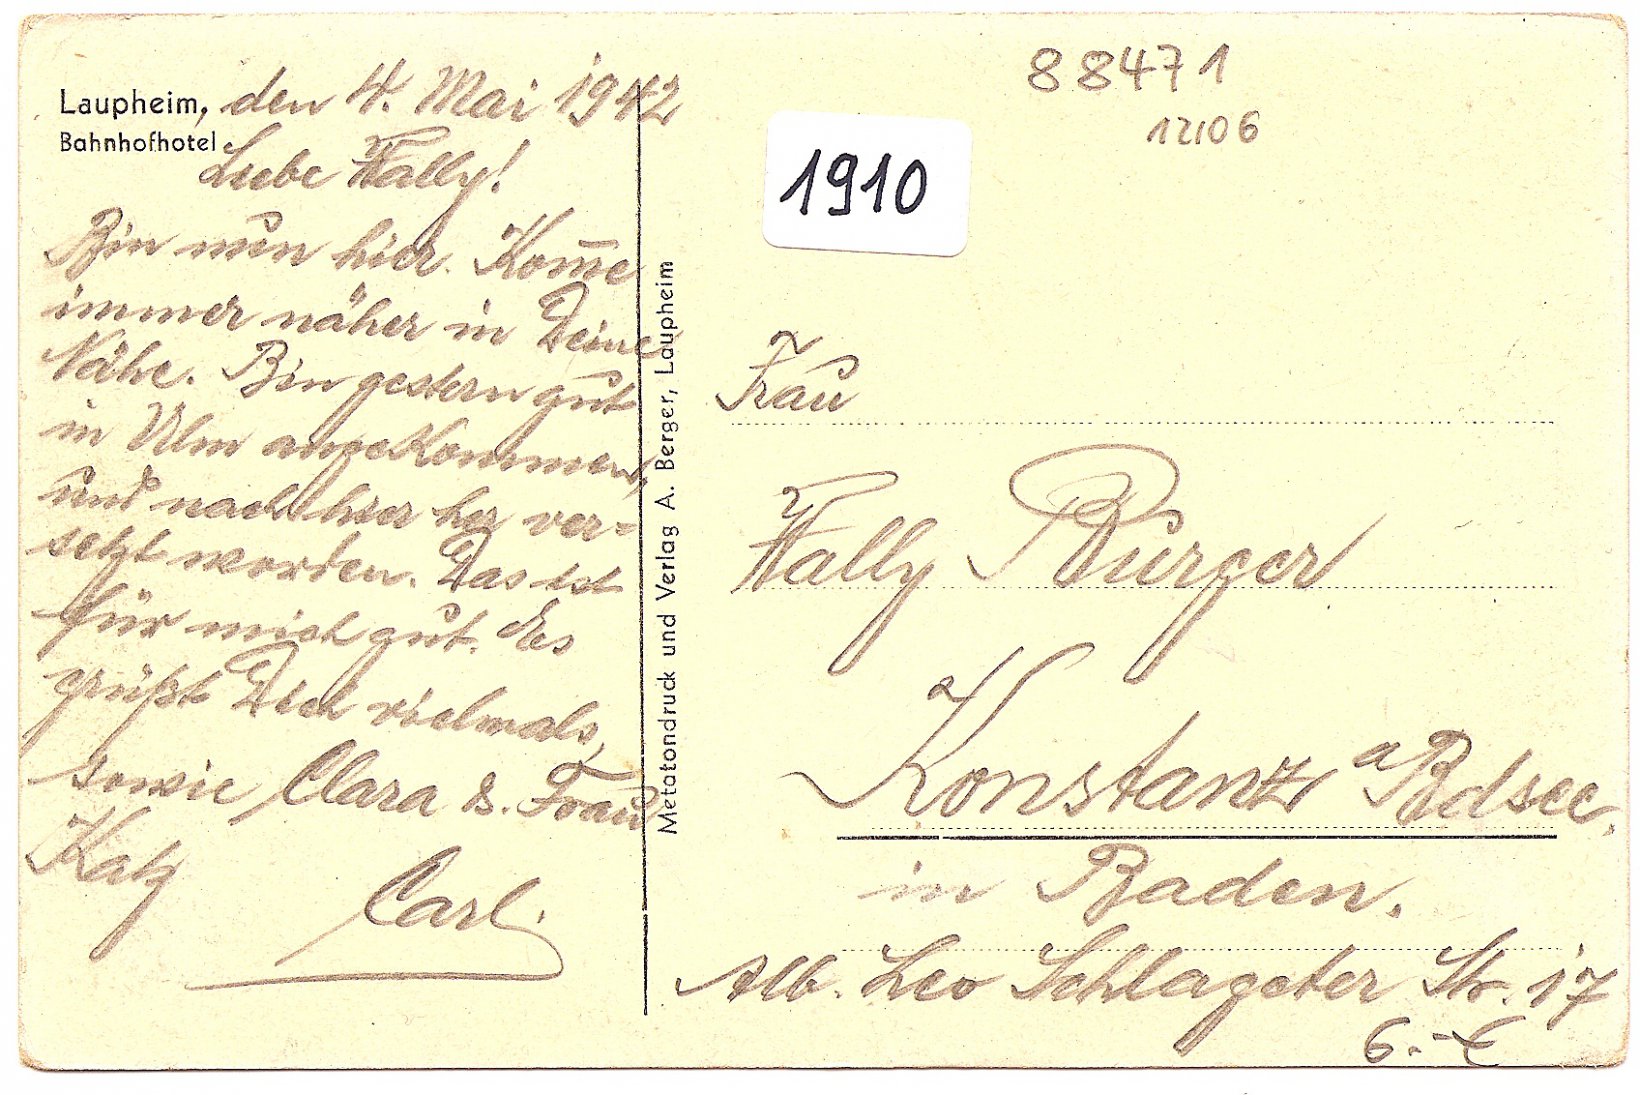 Laupheim, den 4. Mai 1942
Bahnhofhotel
Liebe Wally!
Bin nun hier. Kom̅e
immer näher in Deine
Nähe. Bin gestern gut
in Ulm angekommen,
und nach hier her ver=
setzt worden. Das ist
für mich gut. Es
grüßt Dich vielmals,
sowie Clara & Frau
Katz
Carl.
Metatondruck und Verlag A. Berger, Laupheim
88471
12106
1910
Frau
Wally Burger
Konstanz a Bdsee.
in Baden.
Alb. Leo Schlageter Str. 17
6.-€